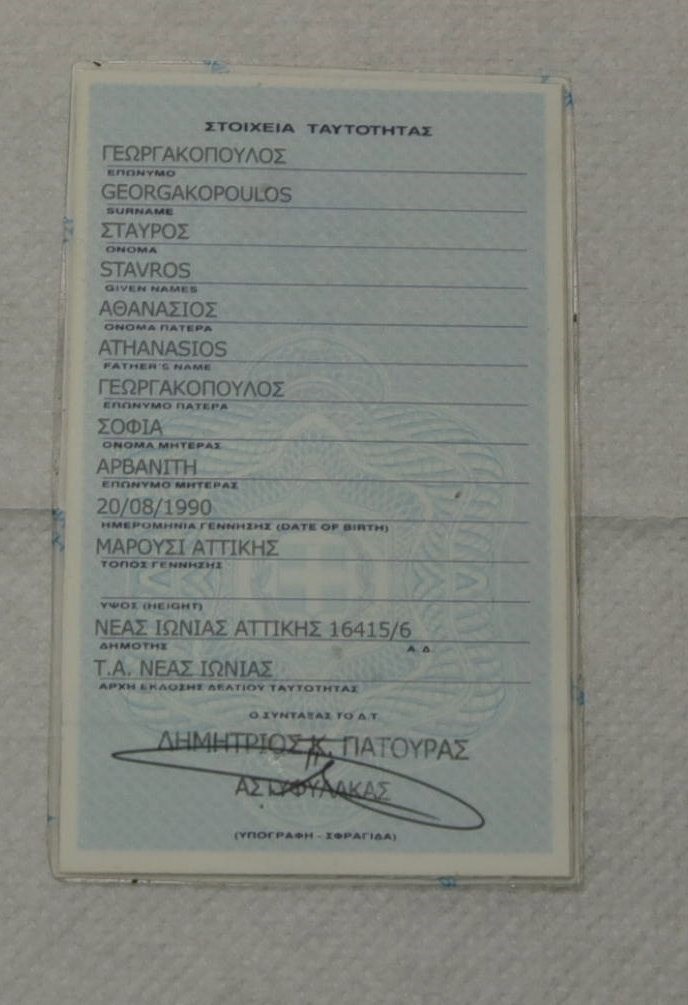 ΣΤΟΙΧΕΙΑ ΤΑΥΤΟΤΗΤΑΣ
ΓΕΩΡΓΑΚΟΠΟΥΛΟΣ
ΕΠΩΝΥΜΟ
GEORGAKOPOULOS
SURNAME
ΣΤΑΥΡΟΣ
ΟΝΟΜΑ
STAVROS
GIVEN NAMES
ΑΘΑΝΑΣΙΟΣ
ΟΝΟΜΑ ΠΑΤΕΡΑ
ATHANASIOS
FATHER'S NAME
ΓΕΩΡΓΑΚΟΠΟΥΛΟΣ
ΕΠΩΝΥΜΟ ΠΑΤΕΡΑ
ΣΟΦΙΑ
ΟΝΟΜΑ ΜΗΤΕΡΑΣ
ΑΡΒΑΝΙΤΗ
ΕΠΩΝΥΜΟ ΜΗΤΕΡΑΣ
20/08/1990
ΗΜΕΡΟΜΗΝΙΑ ΓΕΝΝΗΣΗΣ (DATE OF BIRTH)
ΜΑΡΟΥΣΙ ΑΤΤΙΚΗΣ
ΤΟΠΟΣ ΓΕΝΝΗΣΗΣ
ΥΨΟΣ (HEIGHT)
ΝΕΑΣ ΙΩΝΙΑΣ ΑΤΤΙΚΗΣ 16415/6
ΔΗΜΟΤΗΣ Α.Δ.
Τ.Α. ΝΕΑΣ ΙΩΝΙΑΣ
ΑΡΧΗ ΕΚΔΟΣΗΣ ΔΕΛΤΙΟΥ ΤΑΥΤΟΤΗΤΑΣ
Ο ΣΥΝΤΑΞΑΣ ΤΟ Δ.Τ.
ΔΗΜΗΤΡΙΟΣ Κ. ΠΑΤΟΥΡΑΣ
ΑΣΤΥΦΥΛΑΚΑΣ
(ΥΠΟΓΡΑΦΗ - ΣΦΡΑΓΙΔΑ)